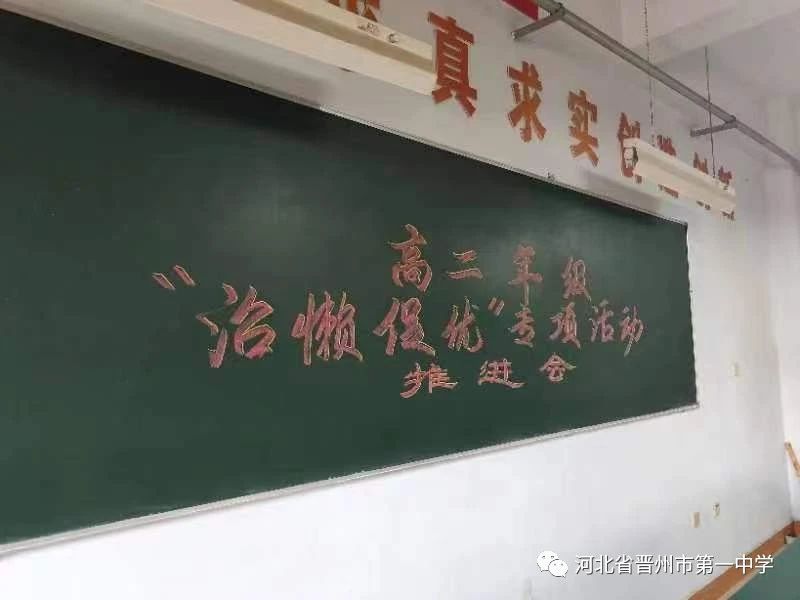 真求实创
高二年级
“治懒促优”专项活动
推进会
河北省晋州市第一中学